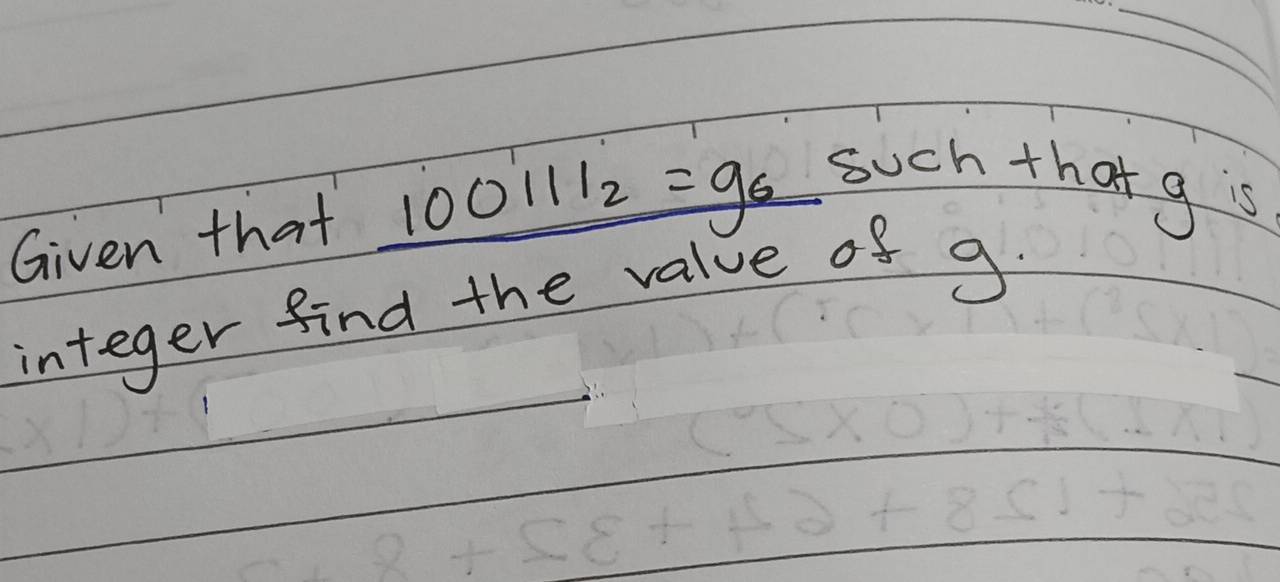 Given that 100111₂ = g₆ such that g is
integer find the value of g.